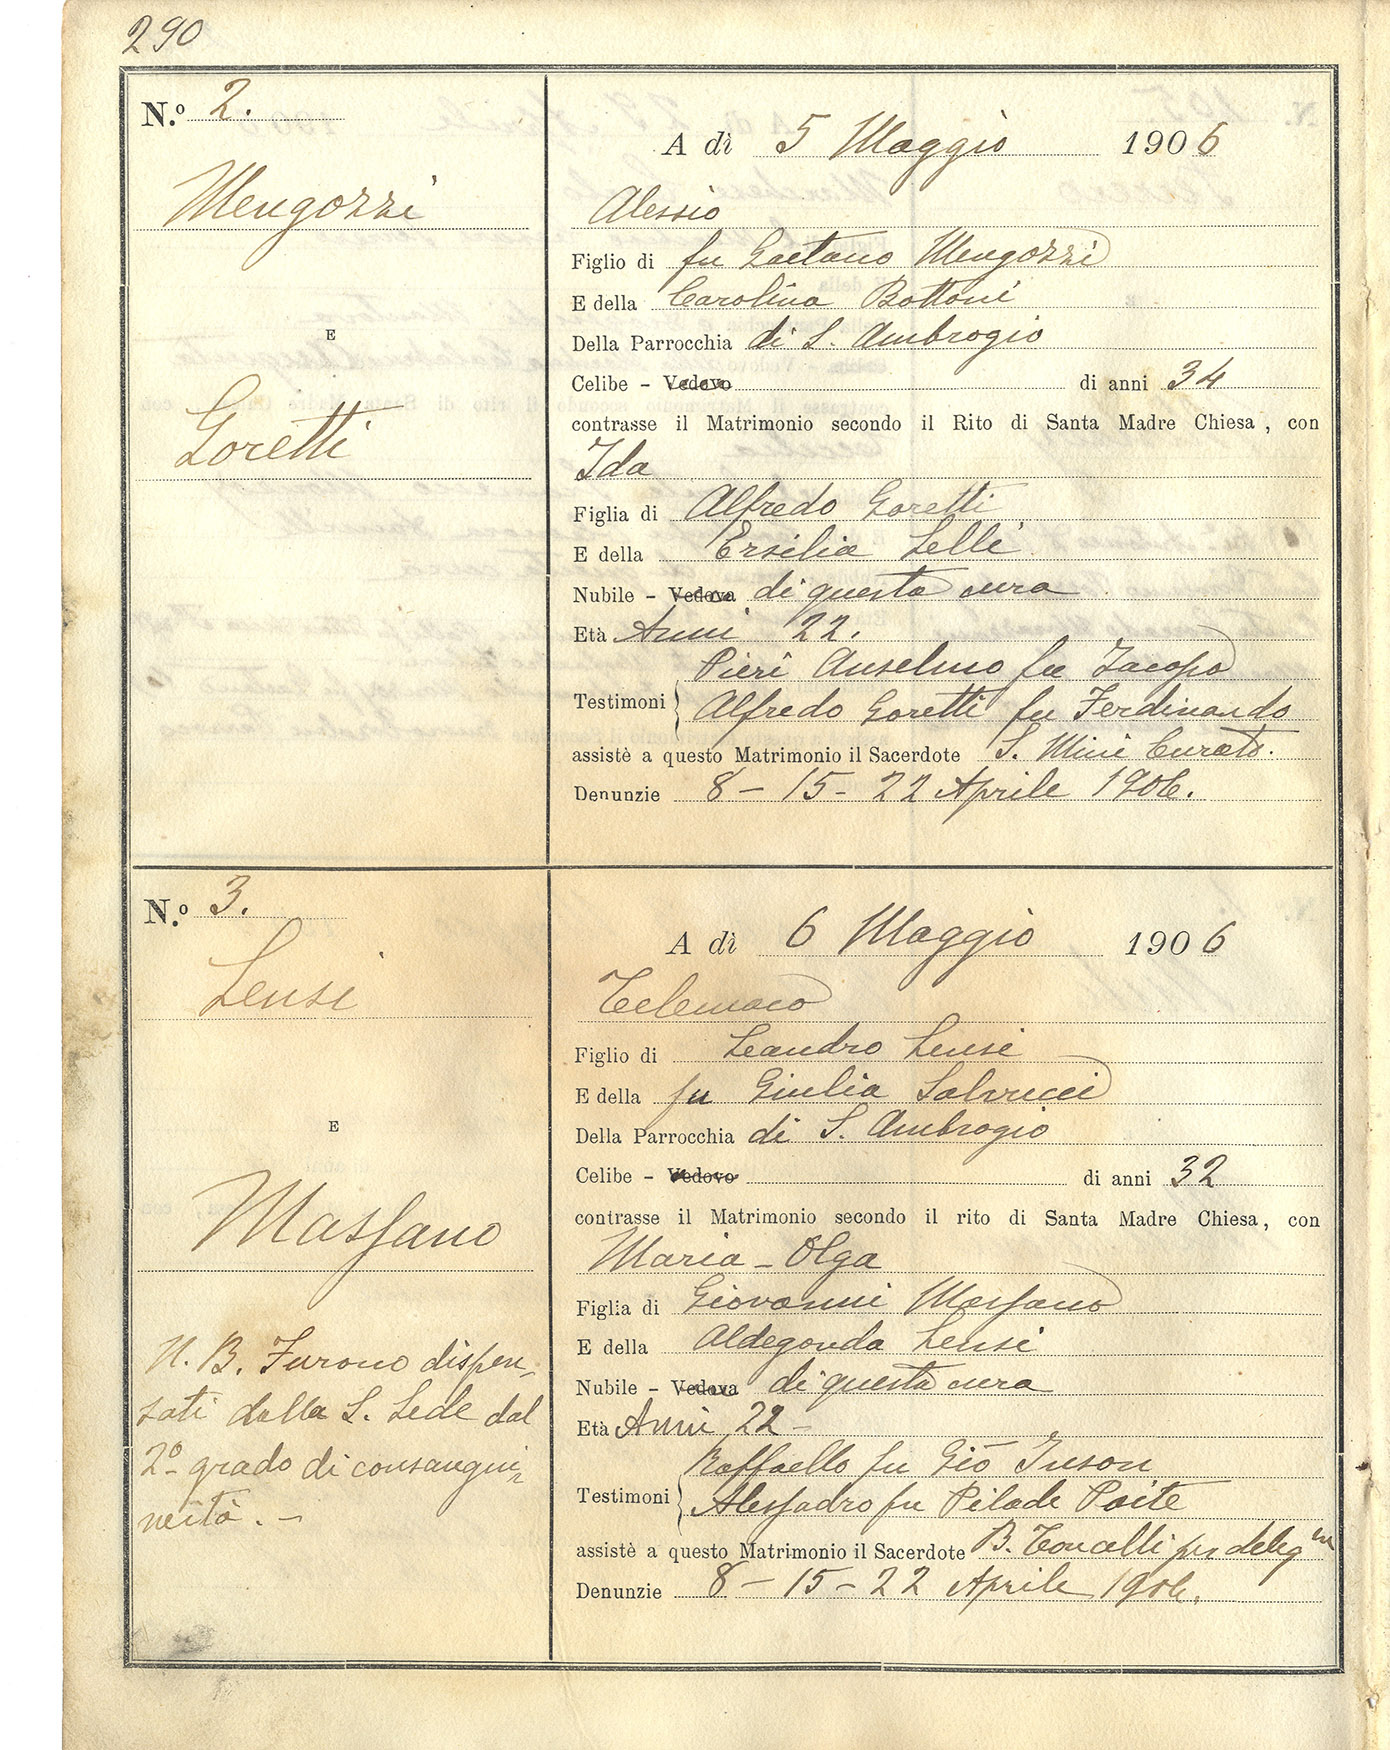 290
N.º 2.
Mengozzi
E
Goretti
A dì 5 Maggio 1906
Alessio
Figlio di fu Gaetano Mengozzi
E della Carolina Bottoni
Della Parrocchia di S. Ambrogio
Celibe - Vedovo di anni 34
contrasse il Matrimonio secondo il Rito di Santa Madre Chiesa, con
Ida
Figlia di Alfredo Goretti
E della Ersilia Lelli
Nubile - Vedova di questa cura
Età Anni 22.
Pieri Anselmo fu Jacopo
Testimoni
Alfredo Goretti fu Ferdinando
assistè a questo Matrimonio il Sacerdote S. Mini Curato.
Denunzie 8 - 15 - 22 Aprile 1906.
N.º 3.
Lensi
E
Massano
N. B. Furono dispen-
sati dalla S. Sede dal
2º grado di consangui-
neità. -
A dì 6 Maggio 1906
Telemaco
Figlio di Leandro Lensi
E della fu Giulia Salvucci
Della Parrocchia di S. Ambrogio
Celibe - Vedovo di anni 32
contrasse il Matrimonio secondo il rito di Santa Madre Chiesa, con
Maria - Olga
Figlia di Giovanni Massano
E della Aldegonda Lensi
Nubile - Vedova di questa cura
Età Anni 22 -
Raffaello fu Gio
Testimoni
Alessadro fu Pilade
assistè a questo Matrimonio il Sacerdote B. Toncelli per deleg.ne
Denunzie 8 - 15 - 22 Aprile 1906.